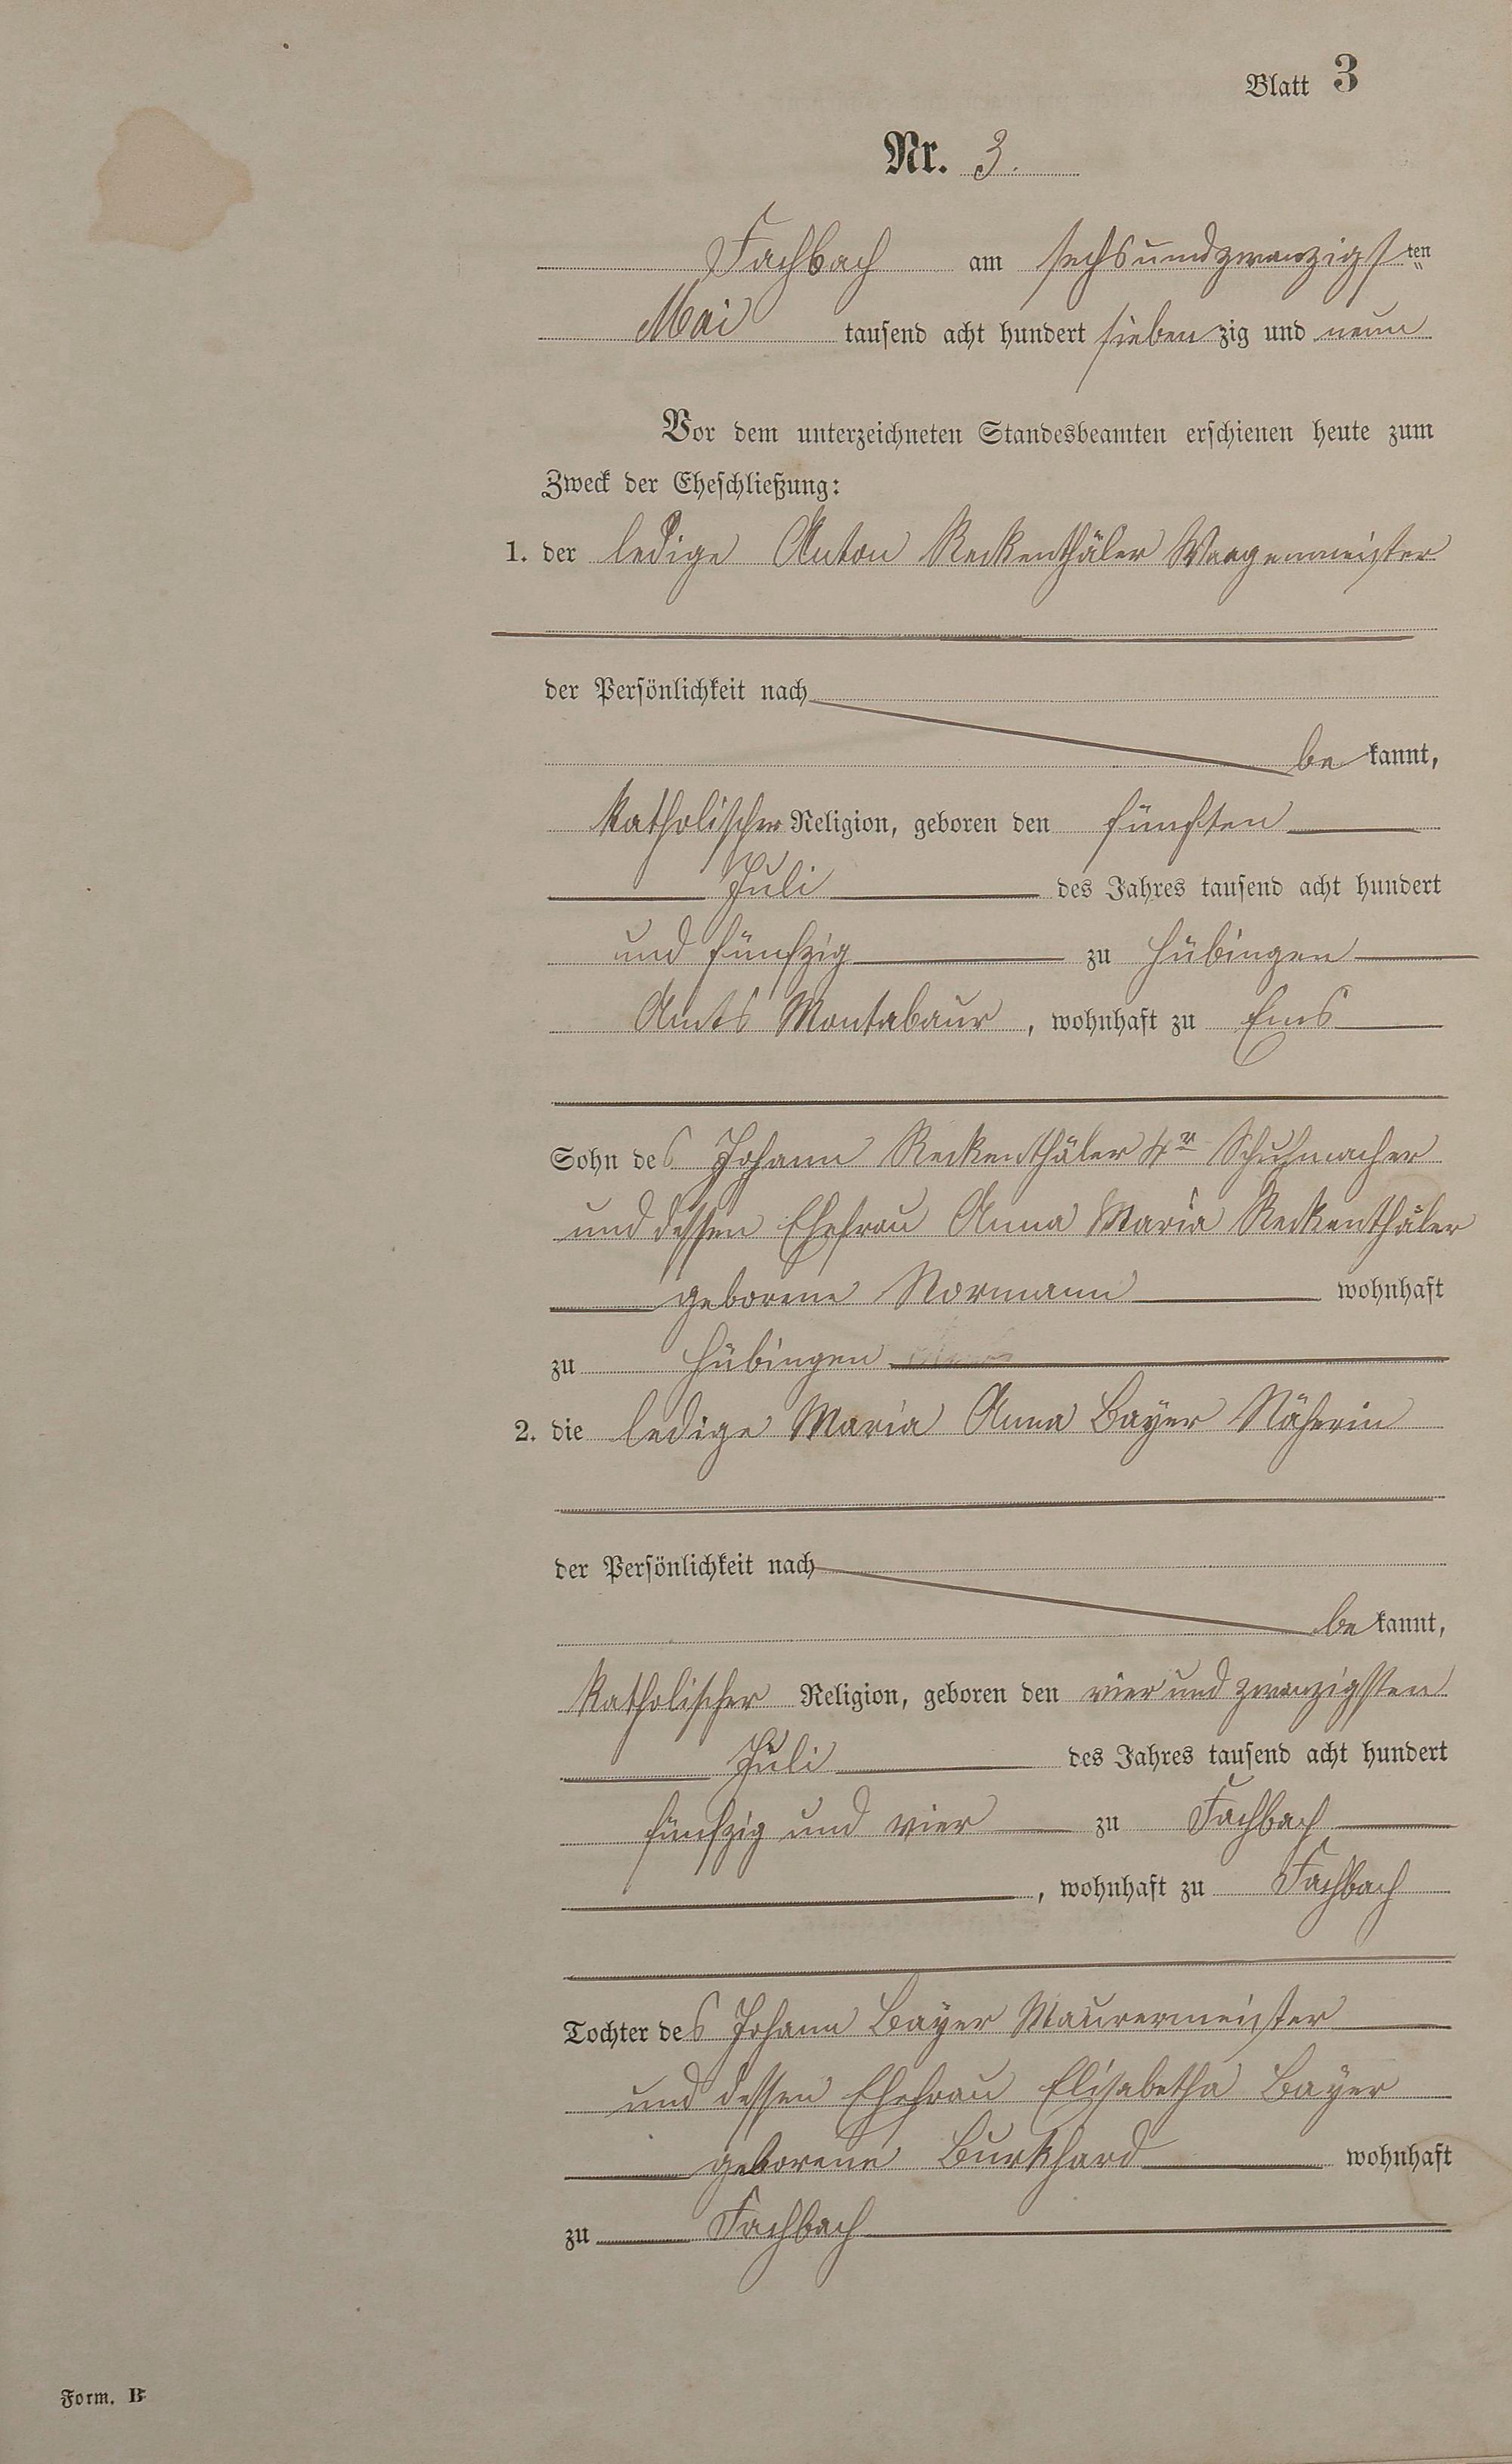 Blatt 3
Nr. 3.
Fachbach am sechsundzwanzigsten
Mai tausend acht hundert siebenzig und neun
Vor dem unterzeichneten Standesbeamten erschienen heute zum
Zweck der Eheschließung:
1. der ledige Anton Reckenthäler Waagenmeister
der Persönlichkeit nach
bekannt,
katholischer Religion, geboren den fünften
Juli des Jahres tausend acht hundert
und fünfzig zu Hübingen
Amts Montabaur, wohnhaft zu Ems
Sohn des Johann Reckenthäler 4r Schuhmacher
und dessen Ehefrau Anna Maria Reckenthäler
geborene Normann wohnhaft
zu Hübingen
2. die ledige Maria Anna Bayer Näherin
der Persönlichkeit nach
bekannt,
katholischer Religion, geboren den vier und zwanzigsten
Juli des Jahres tausend acht hundert
fünfzig und vier zu Fachbach
, wohnhaft zu Fachbach
Tochter des Johann Bayer Maurermeister
und dessen Ehefrau Elisabetha Bayer
geborene Burkhard wohnhaft
zu Fachbach
Form. B